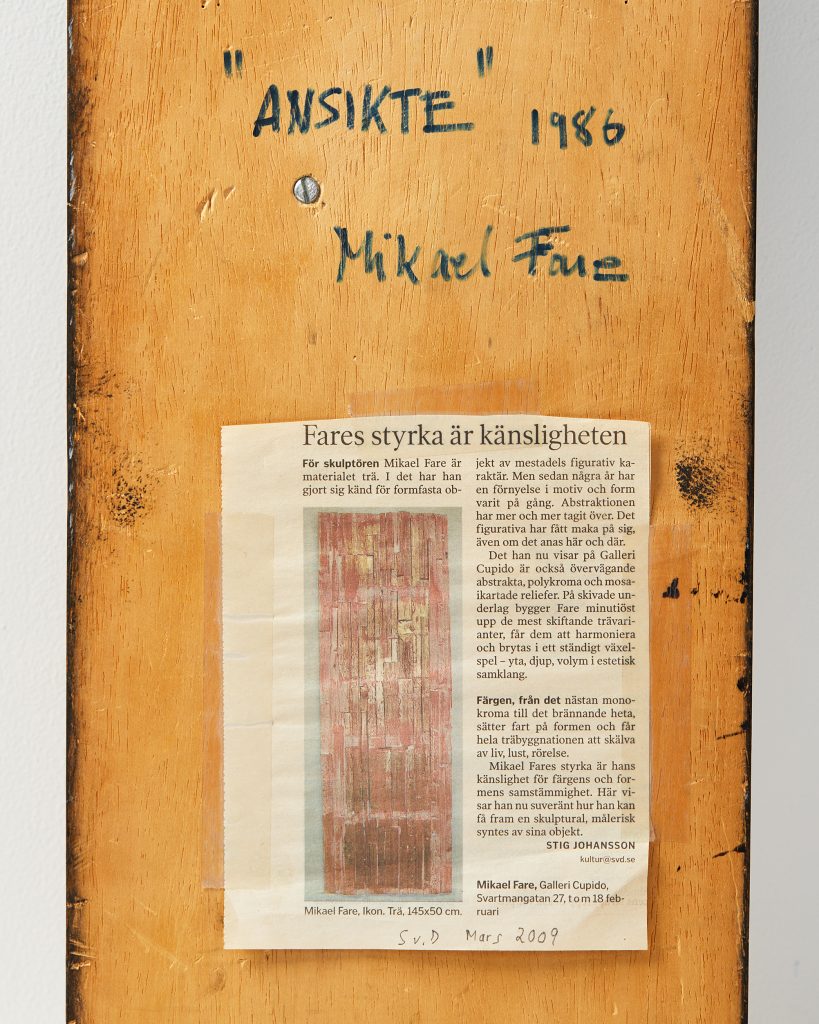 "ANSIKTE" 1986
Mikael Fare
Fares styrka är känsligheten
För skulptören Mikael Fare är
materialet trä. I det har han
gjort sig känd för formfasta ob-
jekt av mestadels figurativ ka-
raktär. Men sedan några år har
en förnyelse i motiv och form
varit på gång. Abstraktionen
har mer och mer tagit över. Det
figurativa har fått maka på sig,
även om det anas här och där.
Det han nu visar på Galleri
Cupido är också övervägande
abstrakta, polykroma och mosa-
ikartade reliefer. På skivade un-
derlag bygger Fare minutiöst
upp de mest skiftande trävari-
anter, får dem att harmoniera
och brytas i ett ständigt växel-
spel – yta, djup, volym i estetisk
samklang.
Färgen, från det nästan mono-
kroma till det brännande heta,
sätter fart på formen och får
hela träbyggnationen att skälva
av liv, lust, rörelse.
Mikael Fares styrka är hans
känslighet för färgens och for-
mens samstämmighet. Här vi-
sar han nu suveränt hur han kan
få fram en skulptural, målerisk
syntes av sina objekt.
STIG JOHANSSON
kultur@svd.se
Mikael Fare, Galleri Cupido,
Svartmangatan 27, t o m 18 feb-
ruari
Mikael Fare, Ikon. Trä, 145x50 cm.
Sv.D Mars 2009